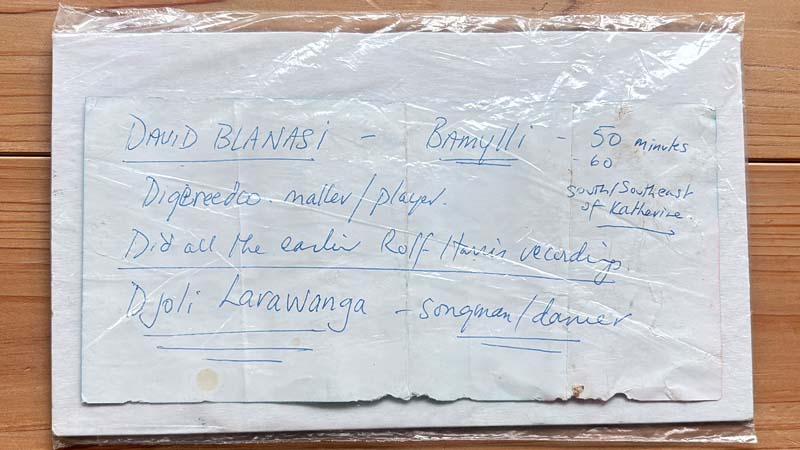 DAVID BLANASI - BAMYLLI - 50 minutes
- 60
Digereedoo. maker/player.
south/Southeast
of Katherine.
Did all the earlier Rolf Harris recordings.
Djoli Larawanga - songman/dancer